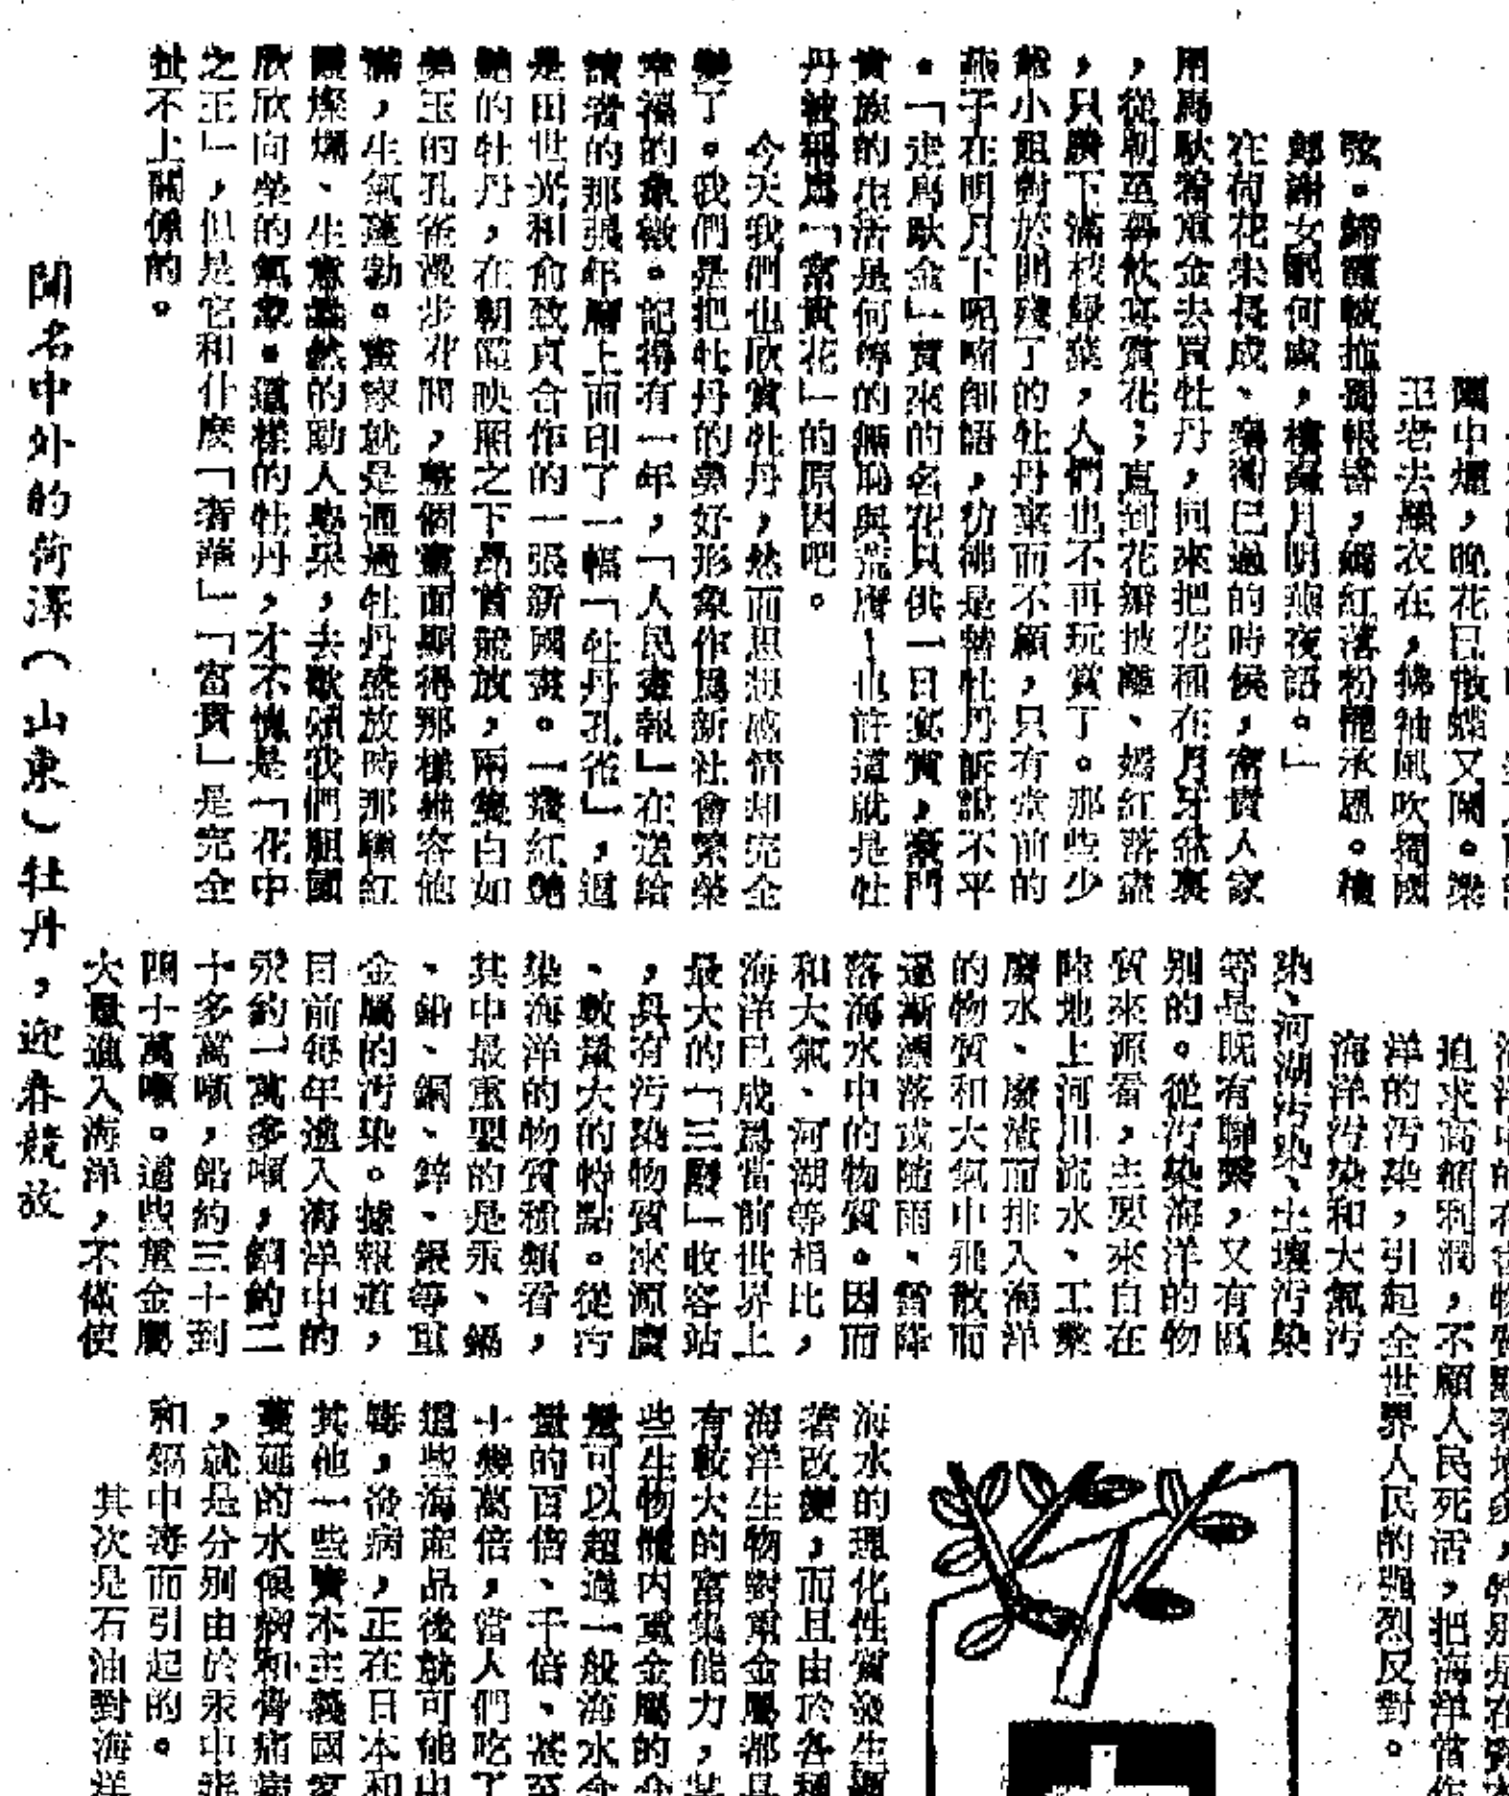 王老去羅衣在，拂袖風吹蜀國
弦。歸霞帔拖蜀帳昏，嫣紅落粉罷承恩。檀
郎謝女眠何處，樓臺月明燕夜語。」
在荷花未長成、已過的時候，富貴人家
用馬馱着重金去買牡丹，回來把花種在月牙盆裏
，從朝至暮飲宴賞花；直到花瓣披離、嫣紅落盡
，只賸下滿枝綠葉，人們也不再玩賞了。那些少
爺小姐對於開殘了的牡丹棄而不顧，只有堂前的
燕子在明月下呢喃細語，彷彿是替牡丹訴說不平
。「走馬馱金」買來的名花只供一日宴賞，豪門
貴族的生活是何等的無恥與荒唐！也許這就是牡
丹被稱爲「富貴花」的原因吧。
今天我們也欣賞牡丹，然而思想感情却完全
變了。我們是把牡丹的美好形象作爲新社會繁榮
幸福的象徵。記得有一年，「人民畫報」在送給
讀者的那張年曆上面印了一幅「牡丹孔雀」，這
是田世光和俞致貞合作的一張新國畫。一叢紅艷
艷的牡丹，在朝霞映照之下昂首競放，兩隻白如
美玉的孔雀漫步其間，整個畫面顯得那樣雍容他
滿，生氣蓬勃。畫家就是通過牡丹盛放時那種紅
霞燦爛、生意盎然的動人光采，去歌頌我們祖國
欣欣向榮的氣象。這樣的牡丹，才不愧是「花中
之王」，但是它和什麼「奢華」「富貴」是完全
扯不上關係的。
聞名中外的荷澤（山東）牡丹，迎春競放
追求高額利潤，不顧人民死活，把海洋當作
洋的污染，引起全世界人民的強烈反對。
海洋污染和大氣污
染、河湖污染、土壤污染
等是既有聯繫，又有區
別的。從污染海洋的物
質來源看，主要來自在
陸地上河川流水、工業
廢水、廢渣而排入海洋
的物質和大氣中飛散而
逐漸漂落或隨雨、雪降
落海水中的物質。因而
和大氣、河湖等相比，
海洋已成爲當前世界上
最大的「三廢」收容站
，具有污染物質來源廣
、數量大的特點。從污
染海洋的物質種類看，
其中最重要的是汞、鎘
、鉛、銅、鋅、銀等重
金屬的污染。據報道，
目前每年進入海洋中的
汞約一萬多噸，銅約二
十多萬噸，鉛約三十到
四十萬噸。這些重金屬
大量進入海洋，不僅使
海水的理化性質發生顯
著改變，而且由於各種
海洋生物對重金屬都具
有較大的富集能力，某
些生物體內重金屬的含
量可以超過一般海水含
量的百倍、千倍、甚至
十幾萬倍，當人們吃了
這些海產品後就可能中
毒，得病，正在日本和
其他一些資本主義國家
蔓延的水俁病和骨痛病
，就是分別由於汞中毒
和鎘中毒而引起的。
其次是石油對海洋